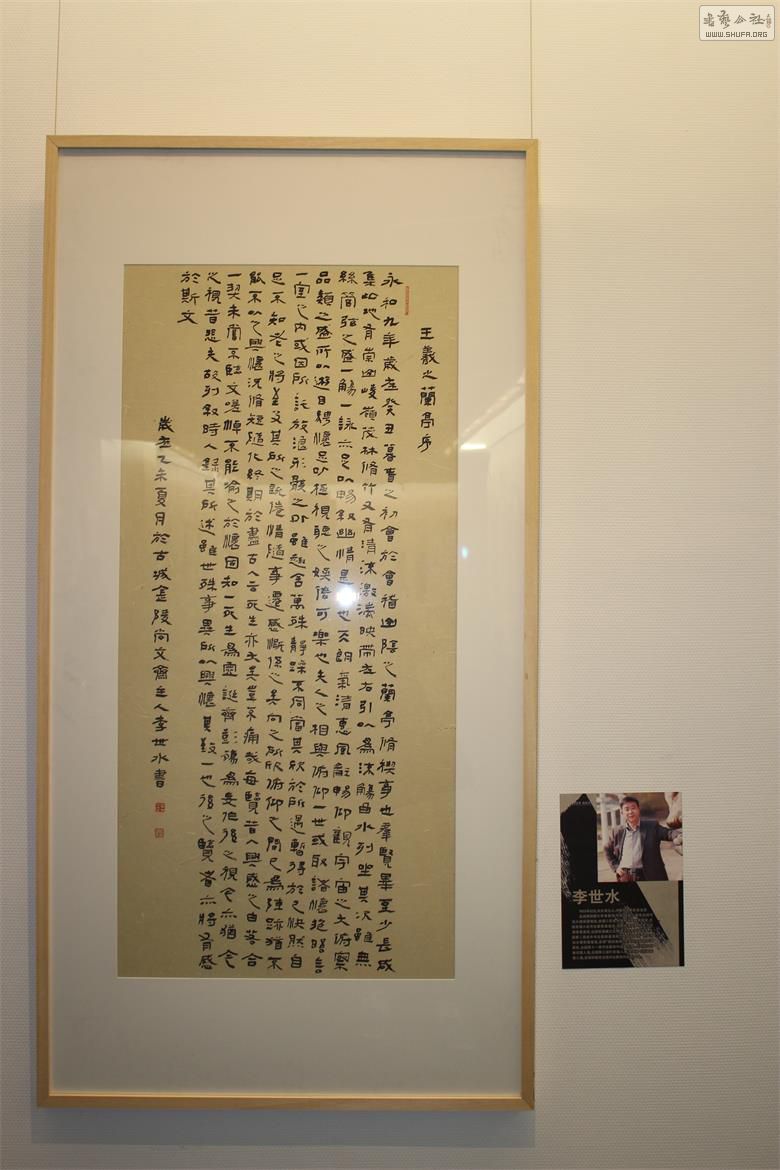 書藝公社
WWW.SHUFA.ORG
王羲之蘭亭序
永和九年歲在癸丑暮春之初會於會稽山陰之蘭亭脩禊事也羣賢畢至少長咸
集此地有崇山峻嶺茂林脩竹又有清流激湍映帶左右引以為流觴曲水列坐其次雖無
絲管弦之盛一觴一詠亦足以暢敘幽情是日也天朗氣清惠風和暢仰觀宇宙之大俯察
品類之盛所以遊目騁懷足以極視聽之娛信可樂也夫人之相與俯仰一世或取諸懷抱晤言
一室之內或因所託放浪形骸之外雖趣舍萬殊靜躁不同當其欣於所遇暫得於己快然自
足不知老之將至及其所之既倦情隨事遷感慨係之矣向之所欣俯仰之間已為陳跡猶不
能不以之興懷況脩短隨化終期於盡古人云死生亦大矣豈不痛哉每覽昔人興感之由若合
一契未嘗不臨文嗟悼不能喻之於懷固知一死生為虛誕齊彭殤為妄作後之視今亦猶今
之視昔悲夫故列敘時人錄其所述雖世殊事異所以興懷其致一也後之覽者亦將有感
於斯文
歲在乙未夏月於古城金陵尚文齋主人李世水書
李世水